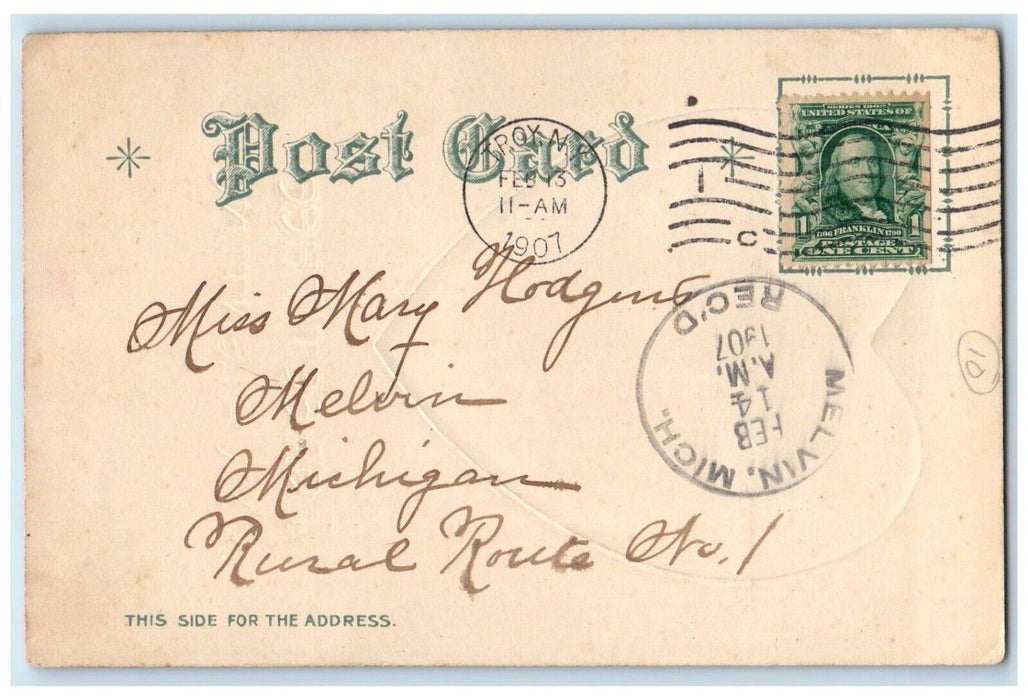 Post Card
TROY, N.Y.
FEB 13
11-AM
1907
SERIES 1902
UNITED STATES OF
AMERICA
1706 FRANKLIN 1790
1 1
POSTAGE
ONE CENT
C
Miss Mary Hodgins
Melvin
Michigan
Rural Route No. 1
MELVIN, MICH.
FEB
14
A.M.
1907
REC'D
10
THIS SIDE FOR THE ADDRESS.